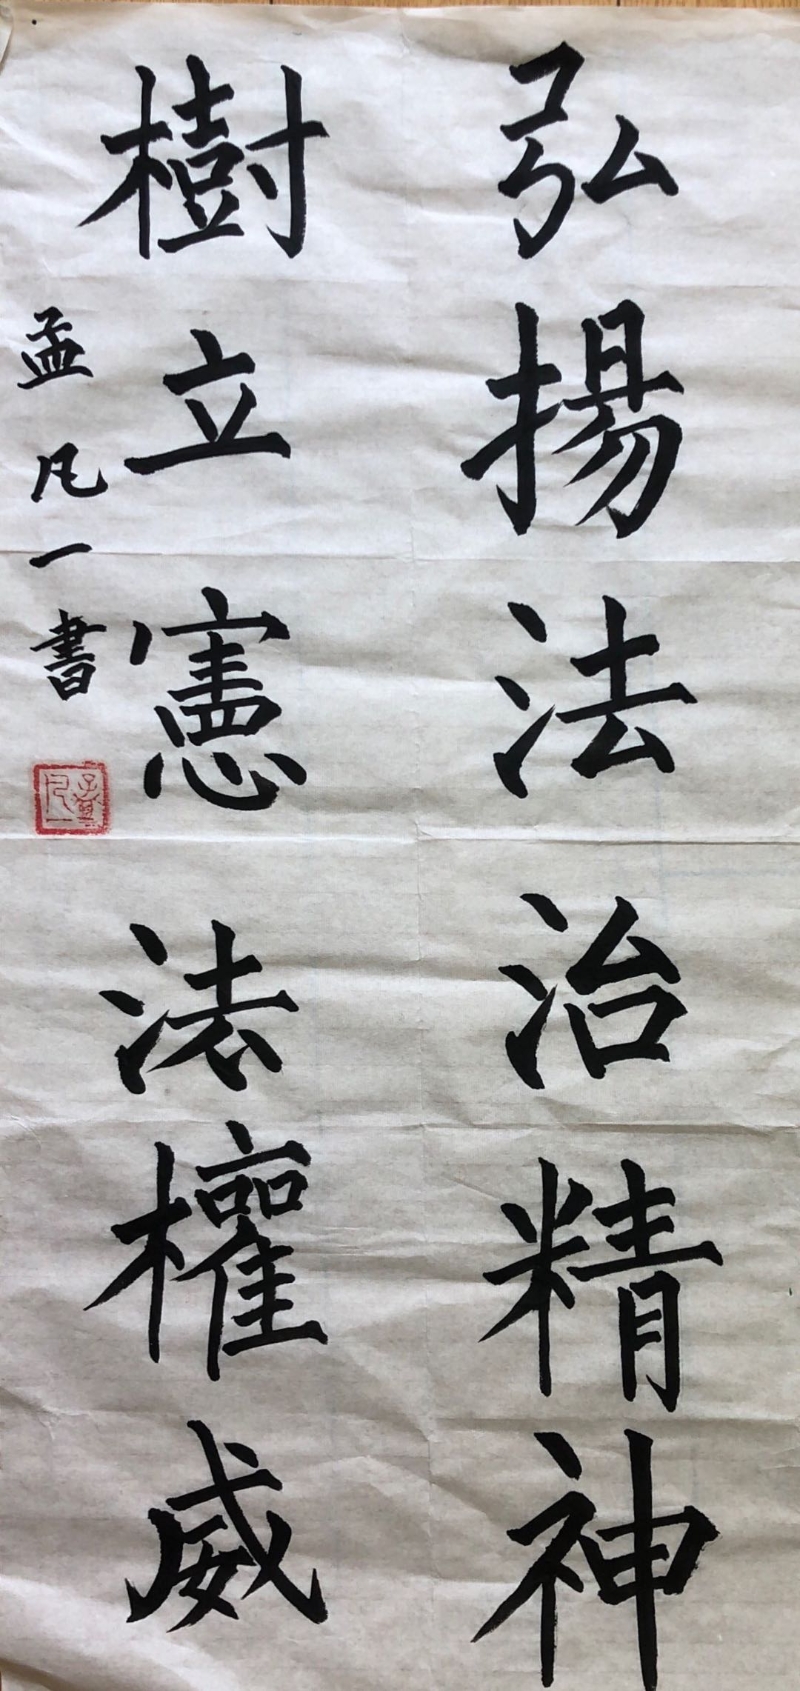 弘揚法治精神
樹立憲法權威
孟凡一書
孟凡一